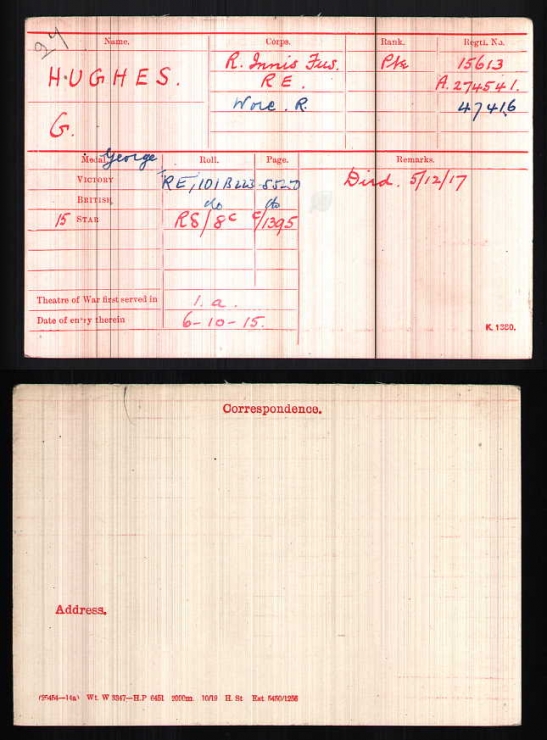 Name. Corps. Rank. Regtl. No.
HUGHES. R. Innis Fus. Pte 15613
R E. A. 274541.
Worc. R. 47416
G.
George
Medal Roll. Page. Remarks.
VICTORY RE/101B223 5520 Died. 5/12/17
BRITISH do do
15 STAR RS/8c C/1395
Theatre of War first served in 1. a.
Date of entry therein 6-10-15.
K. 1380.
Correspondence.
Address.
Wt. W 3347—H.P 6451 2000m. 10/19 H. St